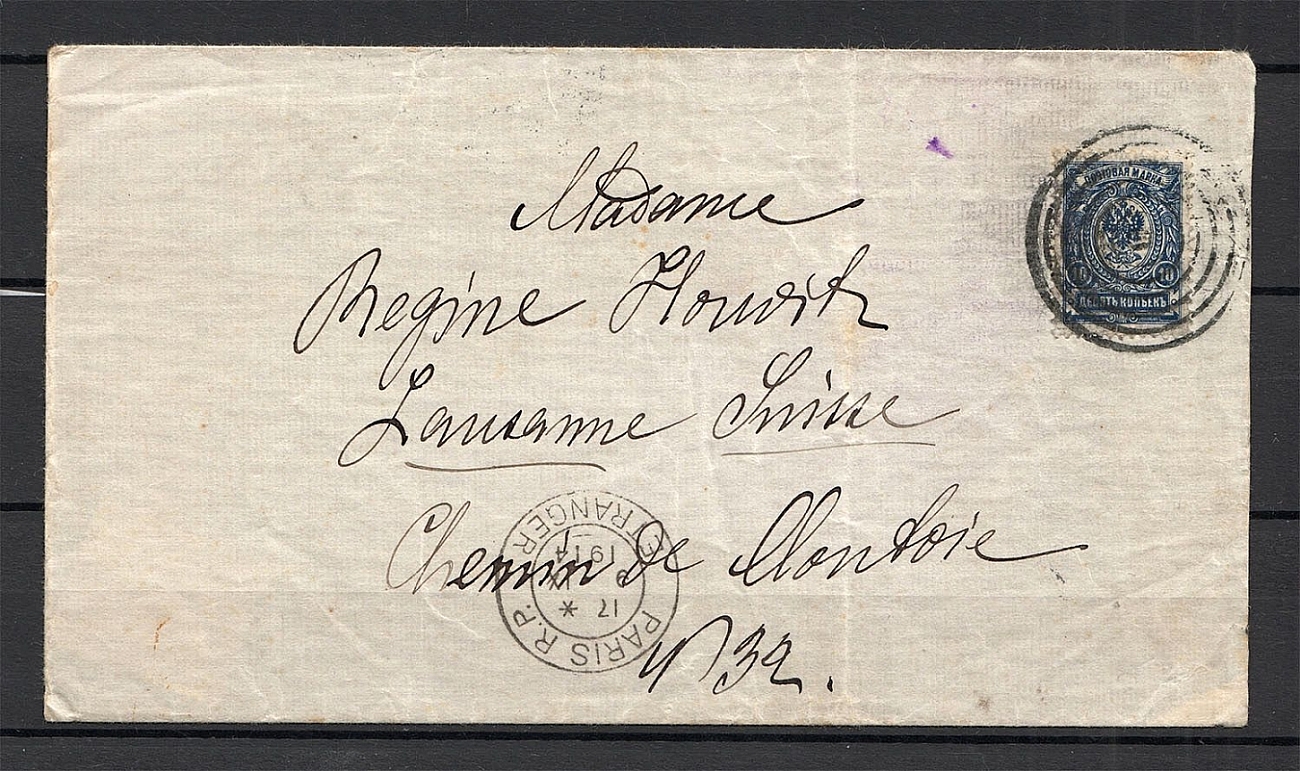 Madame
Regine Horwitz
Lausanne Suisse
Chemin de Montoie
№ 32.
ПОЧТОВАЯ МАРКА
10 10
ДЕСЯТЬ КОПѢЕКЪ
PARIS R.P. ETRANGER
17 *
1914